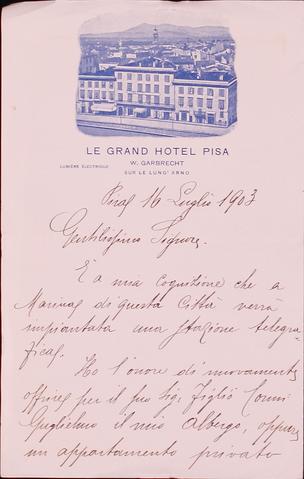 LE GRAND HOTEL PISA
W. GARBRECHT
LUMIÈRE ÉLECTRIQUE
SUR LE LUNG' ARNO
Pisa 16 Luglio 1903
Gentilissimo Signore.
È a mia cognizione che a
Marina di questa Città verrà
impiantata una stazione telegra
fica.
Ho l'onore di nuovamente
offrire per il suo Sig. Figlio Comm.
Guglielmo il mio Albergo, oppure
un appartamento privato